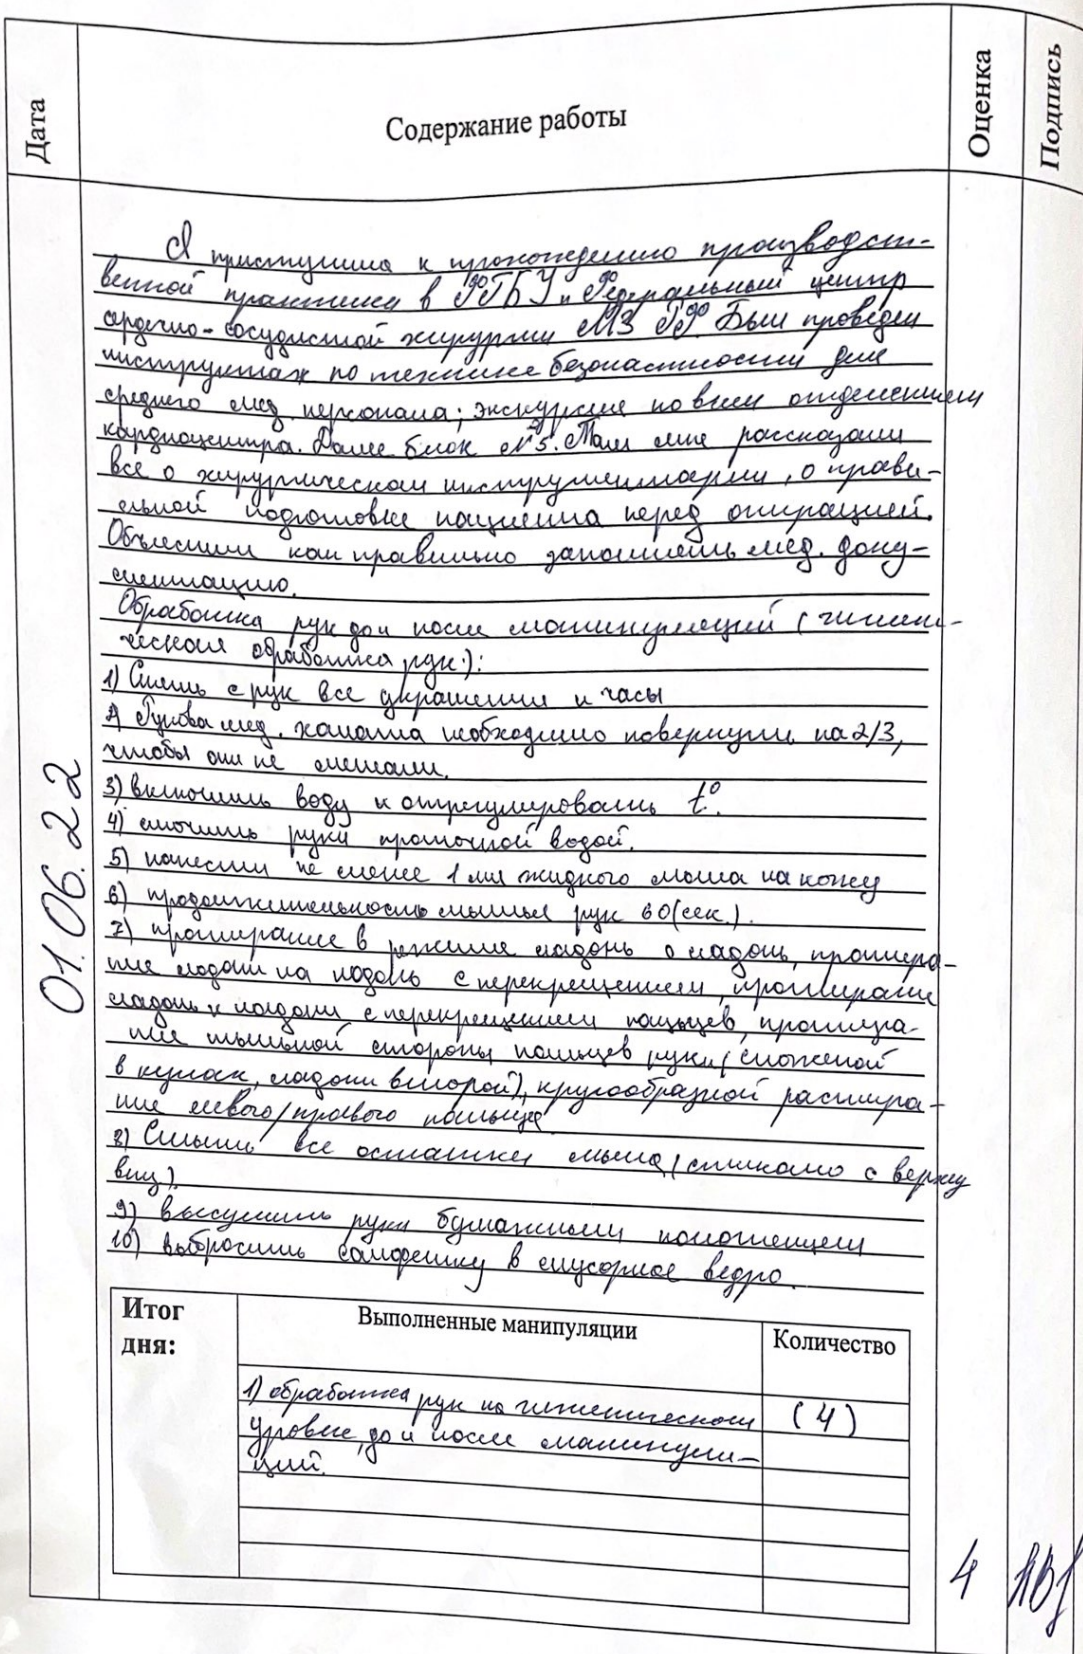 Дата
Содержание работы
Оценка
Подпись
01.06.22
Я приступила к прохождению производст-
венной практики в ФГБУ "Федеральный центр
сердечно-сосудистой хирургии МЗ РФ. Был проведен
инструктаж по технике безопасности для
среднего мед персонала; экскурсия по всем отделениям
кардиоцентра. Далее блок №5. Там мне рассказали
все о хирургическом инструментарии, о прави-
льной подготовке пациента перед операцией.
Объяснили как правильно заполнять мед. доку-
ментацию.
Обработка рук до и после манипуляций (гигиени-
ческая обработка рук.):
1) Снять с рук все украшения и часы
2) Рукова мед. халата необходимо повернуть на 2/3,
чтобы они не мешали.
3) включить воду и отрегулировать t°.
4) смочить руки проточной водой.
5) нанести не менее 1 мл жидкого мыла на кожу
6) продолжительность мытья рук 60(сек.).
7) протирание в режиме ладонь о ладонь, протира-
ние ладони на ладонь с перекрещением, протирание
ладонь к ладони с перекрещением пальцев, протира-
ние тыльной стороны пальцев руки (сложеной
в кулак, ладони второй), кругообразной растира-
ние левого/правого пальца
8) Смыть все остатки мыла (стикало с верху
вниз).
9) высушить руки бумажным полотенцем
10) выбросить салфетку в мусорное ведро.
Итог
дня:
Выполненные манипуляции
Количество
1) обработка рук на гигиеническом (4)
уровне, до и после манипуля-
ций.
4